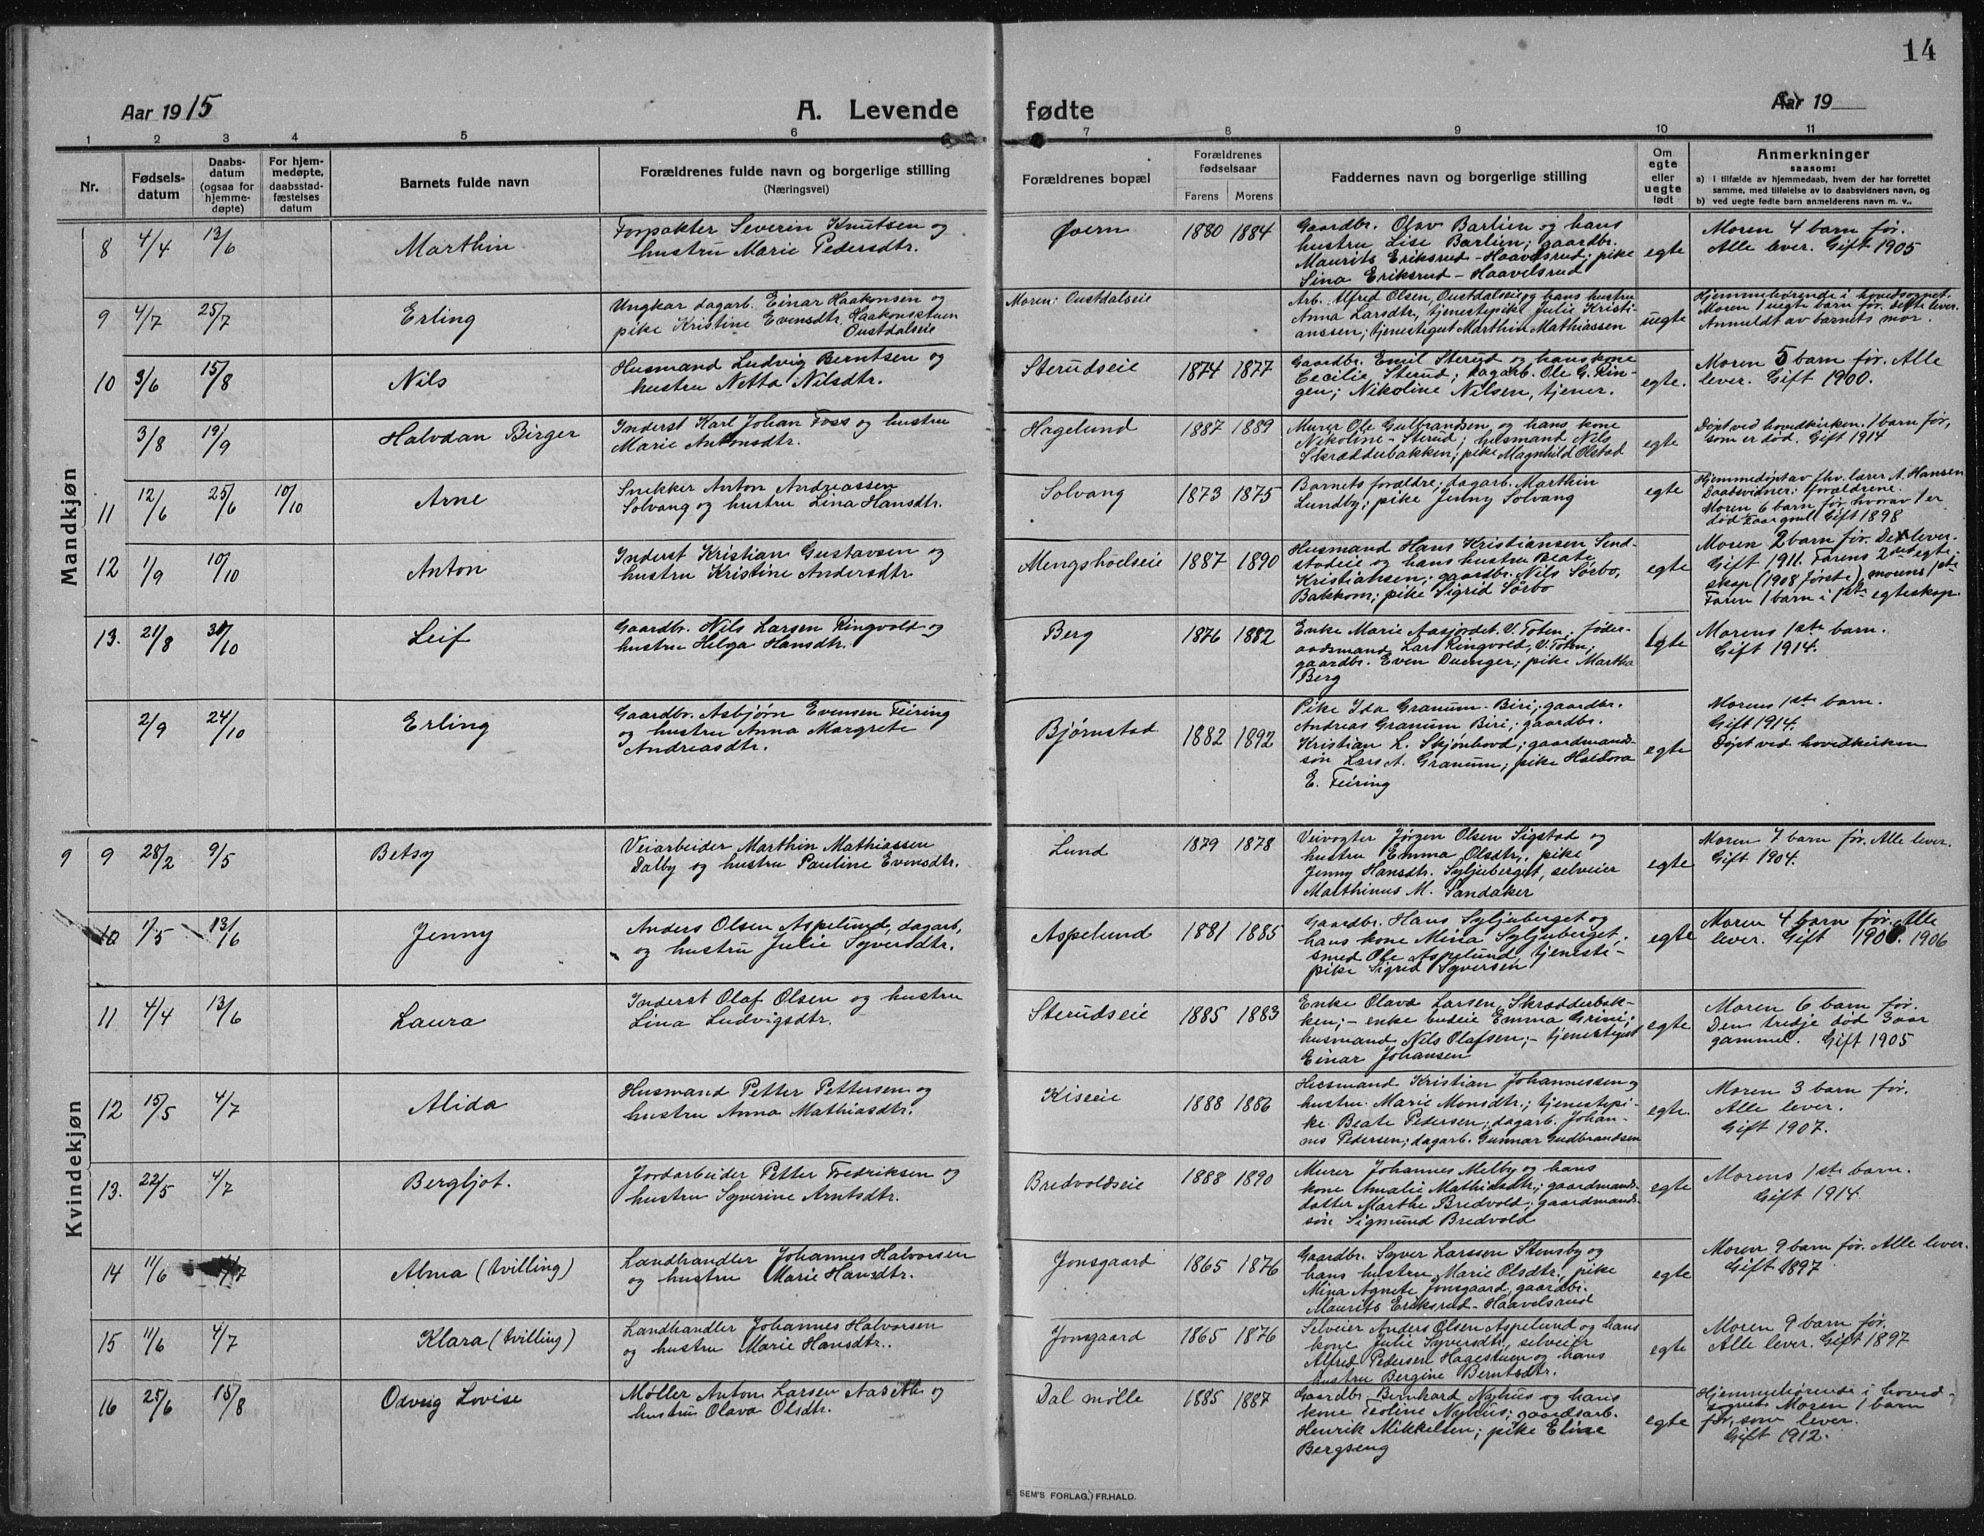 14
Aar 1915 A. Levende fødte Aar 19
1 2 3 4 5 6 7 8 9 10 11
Nr. Fødsels-datum Daabs-datum (ogsaa for hjemme-døpte) For hjem-medøpte, daabsstad-fæstelses datum Barnets fulde navn Forældrenes fulde navn og borgerlige stilling (Næringsvei) Forældrenes bopæl Forældrenes fødselsaar Farens Morens Faddernes navn og borgerlige stilling Om egte eller uegte født Anmerkninger saasom:
a) I tilfælde av hjemmedaab, hvem der har forrettet samme, med tilføielse av to daabsvidners navn, og
b) ved uegte fødte barn anmelderens navn m. v..
Mandkjøn
8 4/4 13/6 Marthin Forpakter Severin Knutsen og
hustru Marie Pedersdtr.
Øvern 1880 1884 Gaardbr. Olav Barlien og hans
hustru Lise Barlien; gaardbr.
Maurits Eriksrud-Haavelsrud; pike
Sina Eriksrud-Haavelsrud
egte Moren 4 barn før.
Alle lever. Gift 1905
9 4/7 25/7 Erling Ungkar dagarb. Einar Haakonsen og
pike Kristine Evensdtr. Haakonstuen
Oustdalseie
Moren: Oustdalseie Arb. Alfred Olsen, Oustdalseie og hans hustru
Anna Larsdtr, tjenestepike Julie Kristi-
anssen; tjenestegut Marthin Mathiassen
uegte Hjemmehørende i hovedsognet.
Moren 1 uegte barn før. dette lever.
Anmeldt av barnets mor.
10 3/6 15/8 Nils Husmand Ludvig Berntsen og
hustru Netta Nilsdtr.
Sterudseie 1874 1877 Gaardbr. Emil Sterud og hans kone
Cecilie Sterud; dagarb. Ole G. Rin-
gen; Nikoline Nilsen, tjener.
egte. Moren 5 barn før. Alle
lever. Gift 1900.
3/8 19/9 Halvdan Birger Inderst Karl Johan Foss og hustru
Marie Antonsdtr.
Hagelund 1887 1889 Murer Ole Gulbrandsen og hans kone
Nikoline-Sterud; husmand Nils
Skrædderbakken; pike Magnhild Olstad
egte Døpt ved hovedkirken. 1 barn før,
som er død. Gift 1914
11 12/6 25/6 10/10 Arne Snekker Anton Andreassen
Solvang og hustru Lina Hansdtr.
Solvang 1873 1875 Barnets forældre; dagarb. Marthin
Lundby; pike Jenny Solvang
egte Hjemmedøpt av fhv. lærer A. Hansen
Daabsvidner: forældrene.
Moren 6 barn før, hvorav 1 er
død Gift 1898
12 1/9 10/10 Anton Inderst Kristian Gustavsen og
hustru Kristine Andersdtr
Mengshoelseie 1887 1890 Husmand Hans Kristiansen Send-
stadeie og hans hustru Beate
Kristiansen; gaardbr. Nils Sørbo,
Bakkom; pike Sigrid Sørbo
egte Moren 2 barn før. De lever.
Gift 1911. Farens 2det egte-
skap (1908 første), morens 1ste
Faren 1 barn i 1ste egteskap.
13. 21/8 31/10 Leif Gaardbr. Nils Larsen Ringvold og
hustru Helga Hansdtr.
Berg 1876 1882 Enke Marie Aasjordet V. Toten; føder-
aadsmand Lars Ringvold, V. Toten;
gaardbr. Even Duenger; pike Martha
Berg
egte Morens 1ste barn.
Gift 1914.
2/9 24/10 Erling Gaardbr. Asbjørn Evensen Feiring
og hustru Anna Margrete
Andreasdtr.
Bjørnstad 1882 1892 Pike Ida Granum Biri; gaardbr.
Andreas Granum Biri; gaardbr.
Kristian L. Skjønhovd; gaardmands-
søn Lars A. Granum; pike Haldora
E. Feiring
egte Morens 1ste barn.
Gift 1914.
Døpt ved hovedkirken
Kvindekjøn
9 9 28/2 9/5 Betsy Veiarbeider Marthin Mathiassen
Dalby og hustru Pauline Evensdtr.
Lund 1879 1878 Veivogter Jørgen Olsen Sigstad og
hustru Emma Olsdtr., pike
Jenny Hansdtr. Syljuberget, selveier
Marthinus M. Sandaker
egte Moren 7 barn før. Alle lever.
Gift 1904.
10 1/5 13/6 Jenny Anders Olsen Aspelund, dagarb,
og hustru Julie Syversdtr.
Aspelund 1881 1885 Gaardbr. Hans Syljuberget og
hans kone Mina Syljuberget;
smed Ole Aspelund, tjeneste-
pike Sigrid Syversen
egte Moren 4 barn før. Alle
lever. Gift 1906. 1906
11 4/4 13/6 Laura Inderst Olaf Olsen og hustru
Lina Ludvigsdtr.
Sterudseie 1885 1883 Enke Olava Larsen, Skrædderbak-
ken;- enke budeie Emma Grini;
husmand Nils Olafsen;- tjenestegut
Einar Johansen
egte Moren 6 barn før.
Den tredje død 3 aar
gammel. Gift 1905
12 15/5 4/7 Alida Husmand Petter Pettersen og
hustru Anna Mathiasdtr.
Kiseeie 1888 1886 Husmand Kristian Johannessen og
hustru Marie Monsdtr.; tjenestepi-
ke Beate Pedersen; dagarb. Johan-
nes Pedersen; dagarb. Gunnar Gudbrandsen
egte. Moren 3 barn før.
Alle lever.
Gift 1907.
13. 22/5 4/7 Bergljot. Jordarbeider Petter Fredriksen og
hustru Syverine Arntsdtr.
Bredvoldseie 1888 1890 Murer Johannes Melby og hans
kone Amalie Mathiasdtr.; gaardmands-
datter Marthe Bredvold; gaardmands-
søn Sigmund Bredvold
egte Morens 1ste barn.
Gift 1914.
14 11/6 4/7 Alma (tvilling) Landhandler Johannes Halvorsen
og hustru Marie Hansdtr.
Jonsgaard 1865 1876 Gaardbr. Syver Larssen Stensby og
hans hustru Marie Olsdtr., pike
Mina Agnete Jonsgaard, gaardbr.
Maurits Eriksrud-Haavelsrud
egte Moren 9 barn før. Alle lever.
Gift 1897
15 11/6 4/7 Klara (tvilling) Landhandler Johannes Halvorsen
og hustru Marie Hansdtr.
Jonsgaard 1865 1876 Selveier Anders Olsen Aspelund og hans
kone Julie Syversdtr., selveier
Alfred Pedersen Hagestuen og hans
hustru Bergine Berntsdtr.
egte Moren 9 barn før.
Alle lever. Gift 1897
16 25/6 15/8 Odveig Lovise Møller Anton Larsen Aaseth og
hustru Olava Olsdtr.
Dal mølle 1885 1887 Gaardbr. Bernhard Nyhus og hans
kone Teoline Nyhus; gaardsarb.
Henrik Mikkelsen; pike Eline
Bergseng
egte Hjemmehørende i hoved-
sognet. Moren 1 barn
før, som lever.
Gift 1912.
SEM'S FORLAG, FR.HALD.